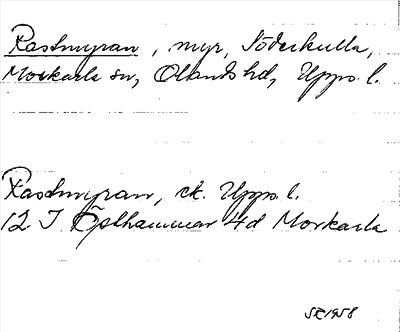 Rastmyran, myr, Söderkulla,
Morkarla sn, Olands hd, Upps. l.
Rastmyran, ek. Upps. l.
12 I Östhammar 4d Morkarla
SE 1958